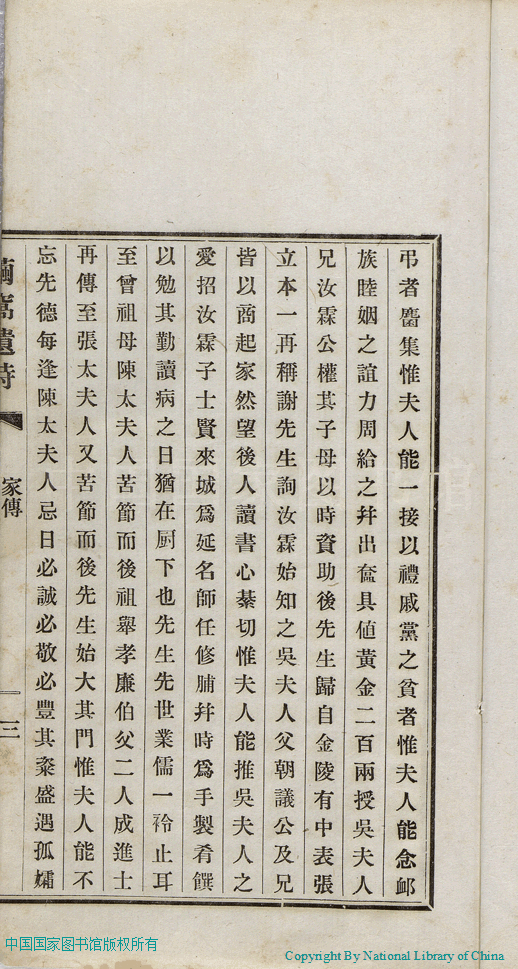 弔者麕集惟夫人能一一接以禮戚黨之貧者惟夫人能念邮
族睦姻之誼力周給之幷出奩具値黃金二百兩授吳夫人
兄汝霖公權其子母以時資助後先生歸自金陵有中表張
立本一再稱謝先生詢汝霖始知之吳夫人父朝議公及兄
皆以商起家然望後人讀書心綦切惟夫人能推吳夫人之
愛招汝霖子士賢來城爲延名師任修脯幷時爲手製肴饌
以勉其勤讀病之日猶在厨下也先生先世業儒一衿止耳
至曾祖母陳太夫人苦節而後祖舉孝廉伯父二人成進士
再傳至張太夫人又苦節而後先生始大其門惟夫人能不
忘先德每逢陳太夫人忌日必誠必敬必豐其粢盛遇孤孀
遺詩
家傳
三
中国国家图书馆版权所有
Copyright By National Library of China